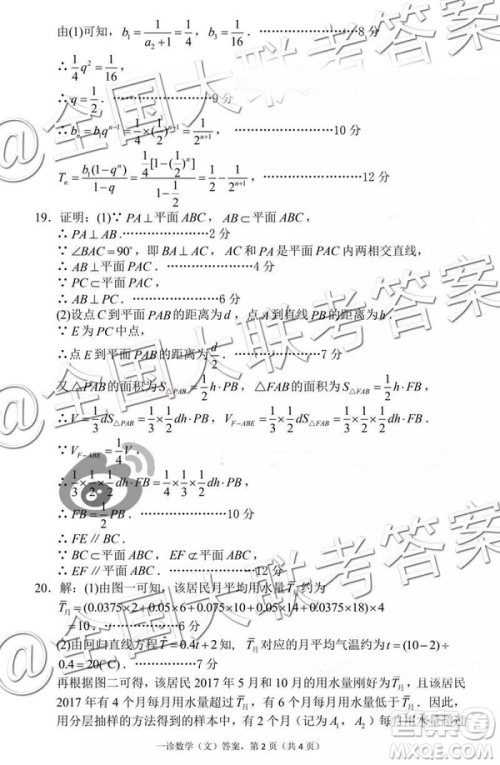 由(1)可知，b₁ = 1/(a₂+1) = 1/4，b₃ = 1/16．………………8分
∴ 1/4 q² = 1/16，
∴ q = 1/2．………………9分
∴ bₙ = b₁qⁿ⁻¹ = 1/4 × (1/2)ⁿ⁻¹ = 1/2ⁿ⁺¹．………………10分
Tₙ = b₁(1−qⁿ)/(1−q) = (1/4[1−(1/2)ⁿ])/(1−1/2) = 1/2 − 1/2ⁿ⁺¹．………………12分
19．证明：(1)∵ PA⊥平面ABC，AB⊂平面ABC，
∴ PA⊥AB．………………2分
∵ ∠BAC=90°，即BA⊥AC，AC和PA是平面PAC内两相交直线，
∴ AB⊥平面PAC．………………4分
∵ PC⊂平面PAC，
∴ AB⊥PC．………………6分
(2)设点C到平面PAB的距离为d，点A到直线PB的距离为h．
∵ E为PC中点，
∴点E到平面PAB的距离为d/2．………………7分
又△PAB的面积为S△PAB = 1/2 h·PB，△FAB的面积为S△FAB = 1/2 h·FB，
∴ V = 1/3 dS△PAB = 1/3 × 1/2 dh·PB，V_F−ABE = 1/3 × 1/2 × 1/2 dh·FB，
∵ V_F−ABE = 1/4 V，
∴ 1/3 × 1/2 × 1/2 dh·FB = 1/4 × 1/3 × 1/2 dh·PB．
∴ FB = 1/2 PB．………………10分
∴ FE∥BC．
∵ BC⊂平面ABC，EF⊄平面ABC，
∴ EF∥平面ABC．………………12分
20．解：(1)由图一可知，该居民月平均用水量T̄月约为
T̄月=(0.0375×2+0.05×6+0.075×10+0.05×14+0.0375×18)×4
=10．………………6分
(2)由回归直线方程T̂=0.4t+2知，T̄月对应的月平均气温约为t=(10−2)÷
0.4=20(℃)．………………7分
再根据图二可得，该居民2017年5月和10月的用水量刚好为T̄月，且该居民
2017年有4个月每月用水量超过T̄月，有6个月每月用水量低于T̄月．因此，
用分层抽样的方法得到的样本中，有2个月（记为A₁，A₂）每月用水量超过
一诊数学（文）答案，第2页（共4页）
@全国大联考答案
@全国大联考答案
@全国大联考答案